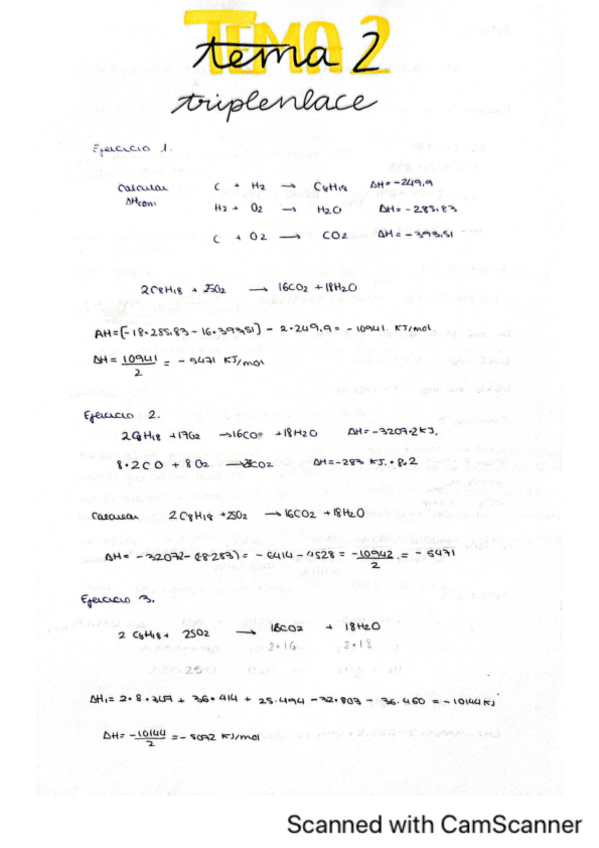 TEMA 2
tema 2
triplenlace
Ejercicio 1.
Calcular C + H2 → C8H18 ΔH=-249,9
ΔHcom H2 + O2 → H2O ΔH=-285.83
C + O2 → CO2 ΔH=-393,51
2C8H18 + 25O2 → 16CO2 + 18H2O
ΔH=[-18·285.83-16·393,51] - 2·249,9 = -10941 KJ/mol
ΔH = 10941/2 = -5471 KJ/mol
Ejercicio 2.
2C8H18 +17O2 →16CO +18H2O ΔH=-3207·2KJ.
8·2CO + 8O2 → CO2 ΔH=-283 KJ.·8.2
Calcular 2C8H18 +25O2 →16CO2 +18H2O
= -6414 -4528 = -10942/2 = -5471
Ejercicio 3.
2 C8H18+ 25O2 → 16CO2 + 18H2O
2·16 2·18
ΔH1= 2·8·347 + 36·414 + 25·494 -32·803 - 36·460 = -10144KJ
ΔH= -10144/2 = -5072 KJ/mol
Scanned with CamScanner